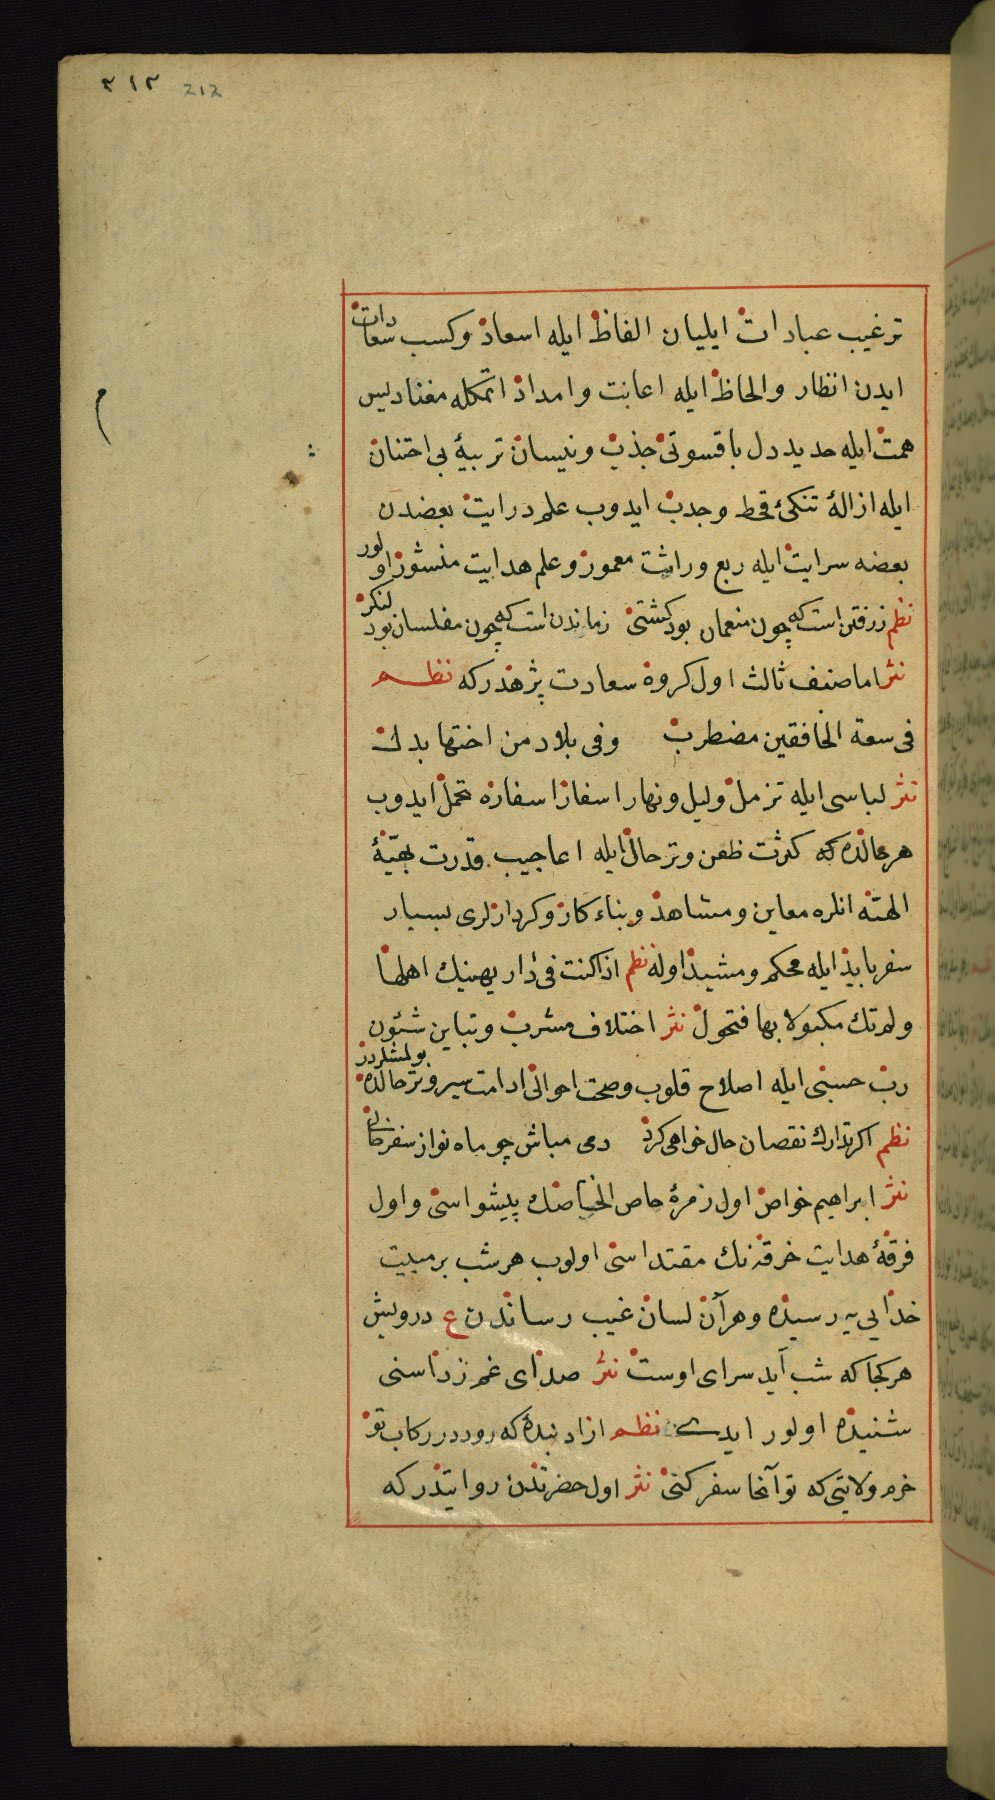 ٢١٢ 212
ترغیب عبادات ایلیان الفاظ ایله اسعاد وکسب سعادات
ایدن انظار والحاظ ایله اعانت وامداد اتمکله مغنادلیس
همت ایله حدید دل باقسوتی جذب ونیسان تربیهٔ بی احتنان
ایله ازالهٔ تنکئ قحط وجدب ایدوب علم درایت بعضدن
بعضه سرایت ایله ربع وراثت معمور وعلم هدایت منشور اولور
نظم زرفتن است که چون منعمان بود کشتی زماندن است که چون مفلسان بود لنکر
نثر اما صنف ثالث اول کروه سعادت پژهدرکه نظم
فی سعة الخافقین مضطرب وفی بلاد من اختها بدل
نثر لباسی ایله تزمل ولیل ونهار اسفار اسفاره تحمل ایدوب
هر حالده که کثرت ظعن وترحال ایله اعاجیب قدرت بهیّهٔ
الهیّه انلره معاین ومشاهد وبناء کار وکردارلری بسیار
سفر باید ایله محکم ومشید اوله نظم اذا کنت فی دار یهینك اهلها
ولم تك مکبولا بها فتحول نثر اختلاف مشرب وتباین شئون
رب حسبی ایله اصلاح قلوب وصحت احوالی ادامت سیر وترحالده بولمشلردر
نظم اکر تدارك نقصان حال خواهی کرد دمی مباش چو ماه نو از سفر خالی
نثر ابراهیم خواص اول زمرهٔ خاص الخاصنك پیشواسی واول
فرقهٔ هدایت خرقه نك مقتداسی اولوب هر شب بر مبیت
خدایی یه رسیده وهر آن لسان غیب رساندن ع درویش
هر کجا که شب آید سرای اوست نثر صدای غم زداسنی
شنیده اولور ایدی نظم ازاد بنده که رود در رکاب تو
خرم ولایتی که تو آنجا سفر کنی نثر اول حضرتدن روایتدر که